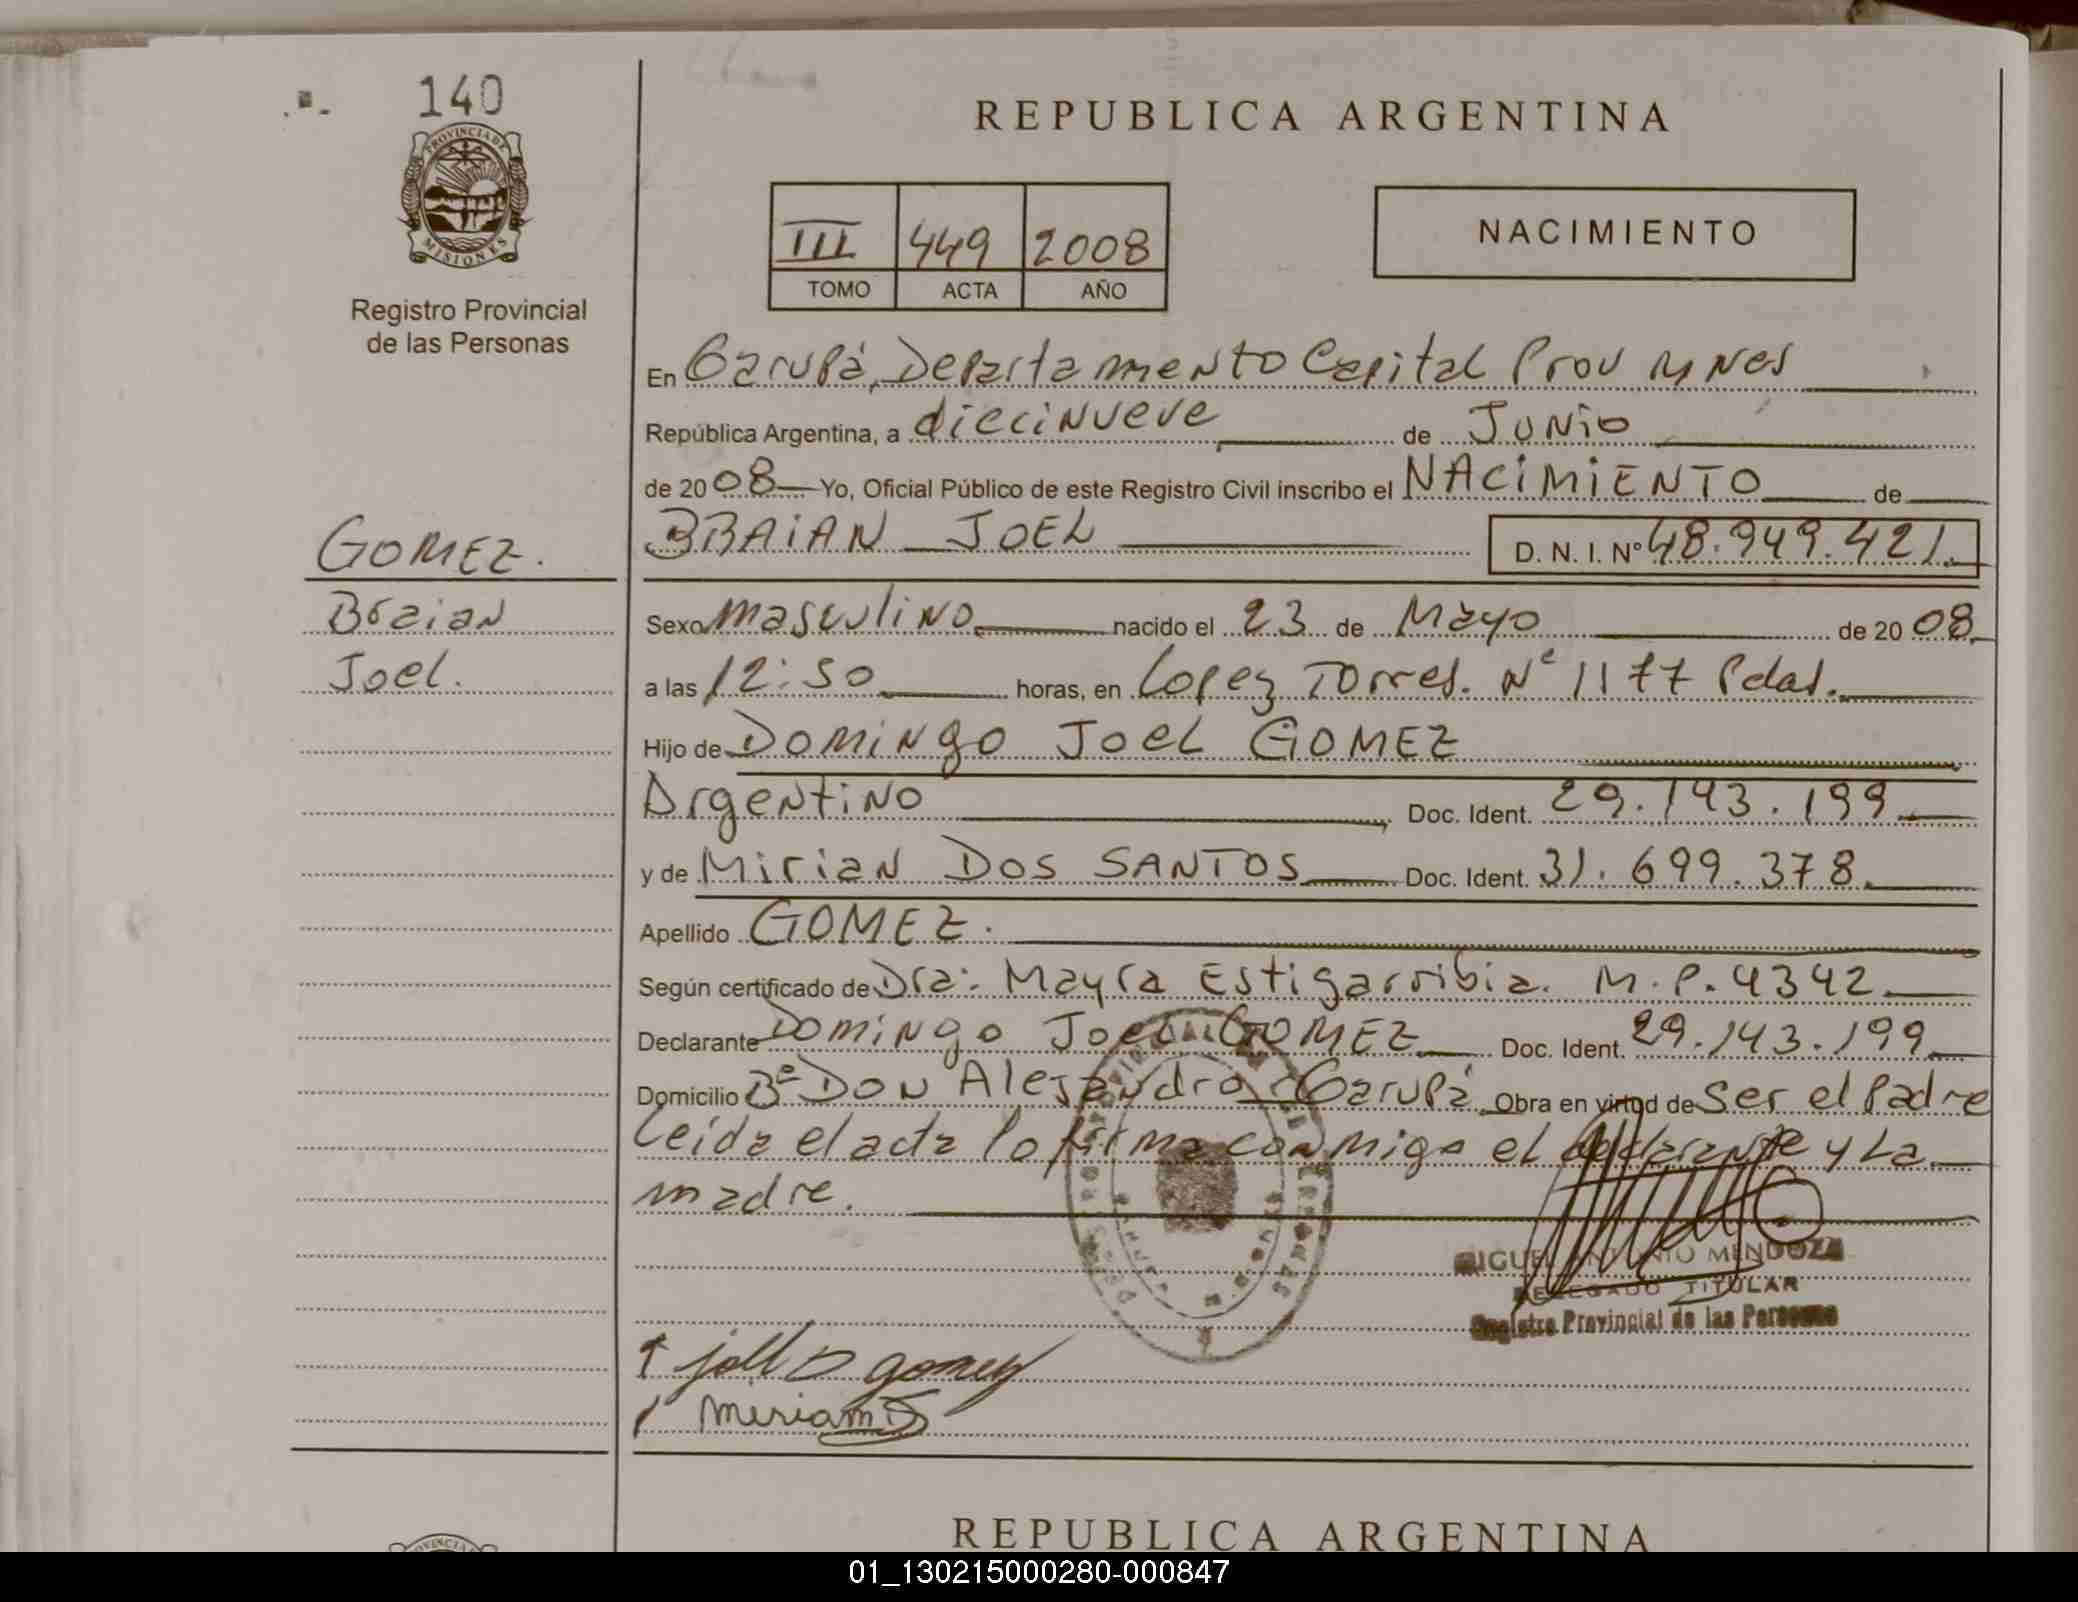 140
PROVINCIA DE
MISIONES
Registro Provincial
de las Personas
GOMEZ.
Braian
Joel.
REPUBLICA ARGENTINA
III 449 2008
TOMO ACTA AÑO
NACIMIENTO
En Garupá, Departamento Capital Prov Mnes
República Argentina, a diecinueve de Junio
de 2008 Yo, Oficial Público de este Registro Civil inscribo el NACIMIENTO de
BRAIAN JOEL D. N. I. Nº 48.949.421.
Sexo masculino nacido el 23 de Mayo de 2008
a las 12:50 horas, en Lopez Torres. Nº 1177 Pdas.
Hijo de Domingo Joel GOMEZ
Argentino Doc. Ident. 29.143.199
y de Mirian DOS SANTOS Doc. Ident. 31.699.378.
Apellido GOMEZ.
Según certificado de Dra: Mayra Estigarribia. M.P. 4342
Declarante Domingo Joel GOMEZ Doc. Ident. 29.143.199
Domicilio Bº DON Alejandro Garupá. Obra en virtud de Ser el Padre
Leída el acta lo firma conmigo el declarante y La
madre.
MIGUEL ANTONIO MENDOZA
DELEGADO TITULAR
Registro Provincial de las Personas
Joel D gomez
Miriam DS
REPUBLICA ARGENTINA
01_130215000280-000847